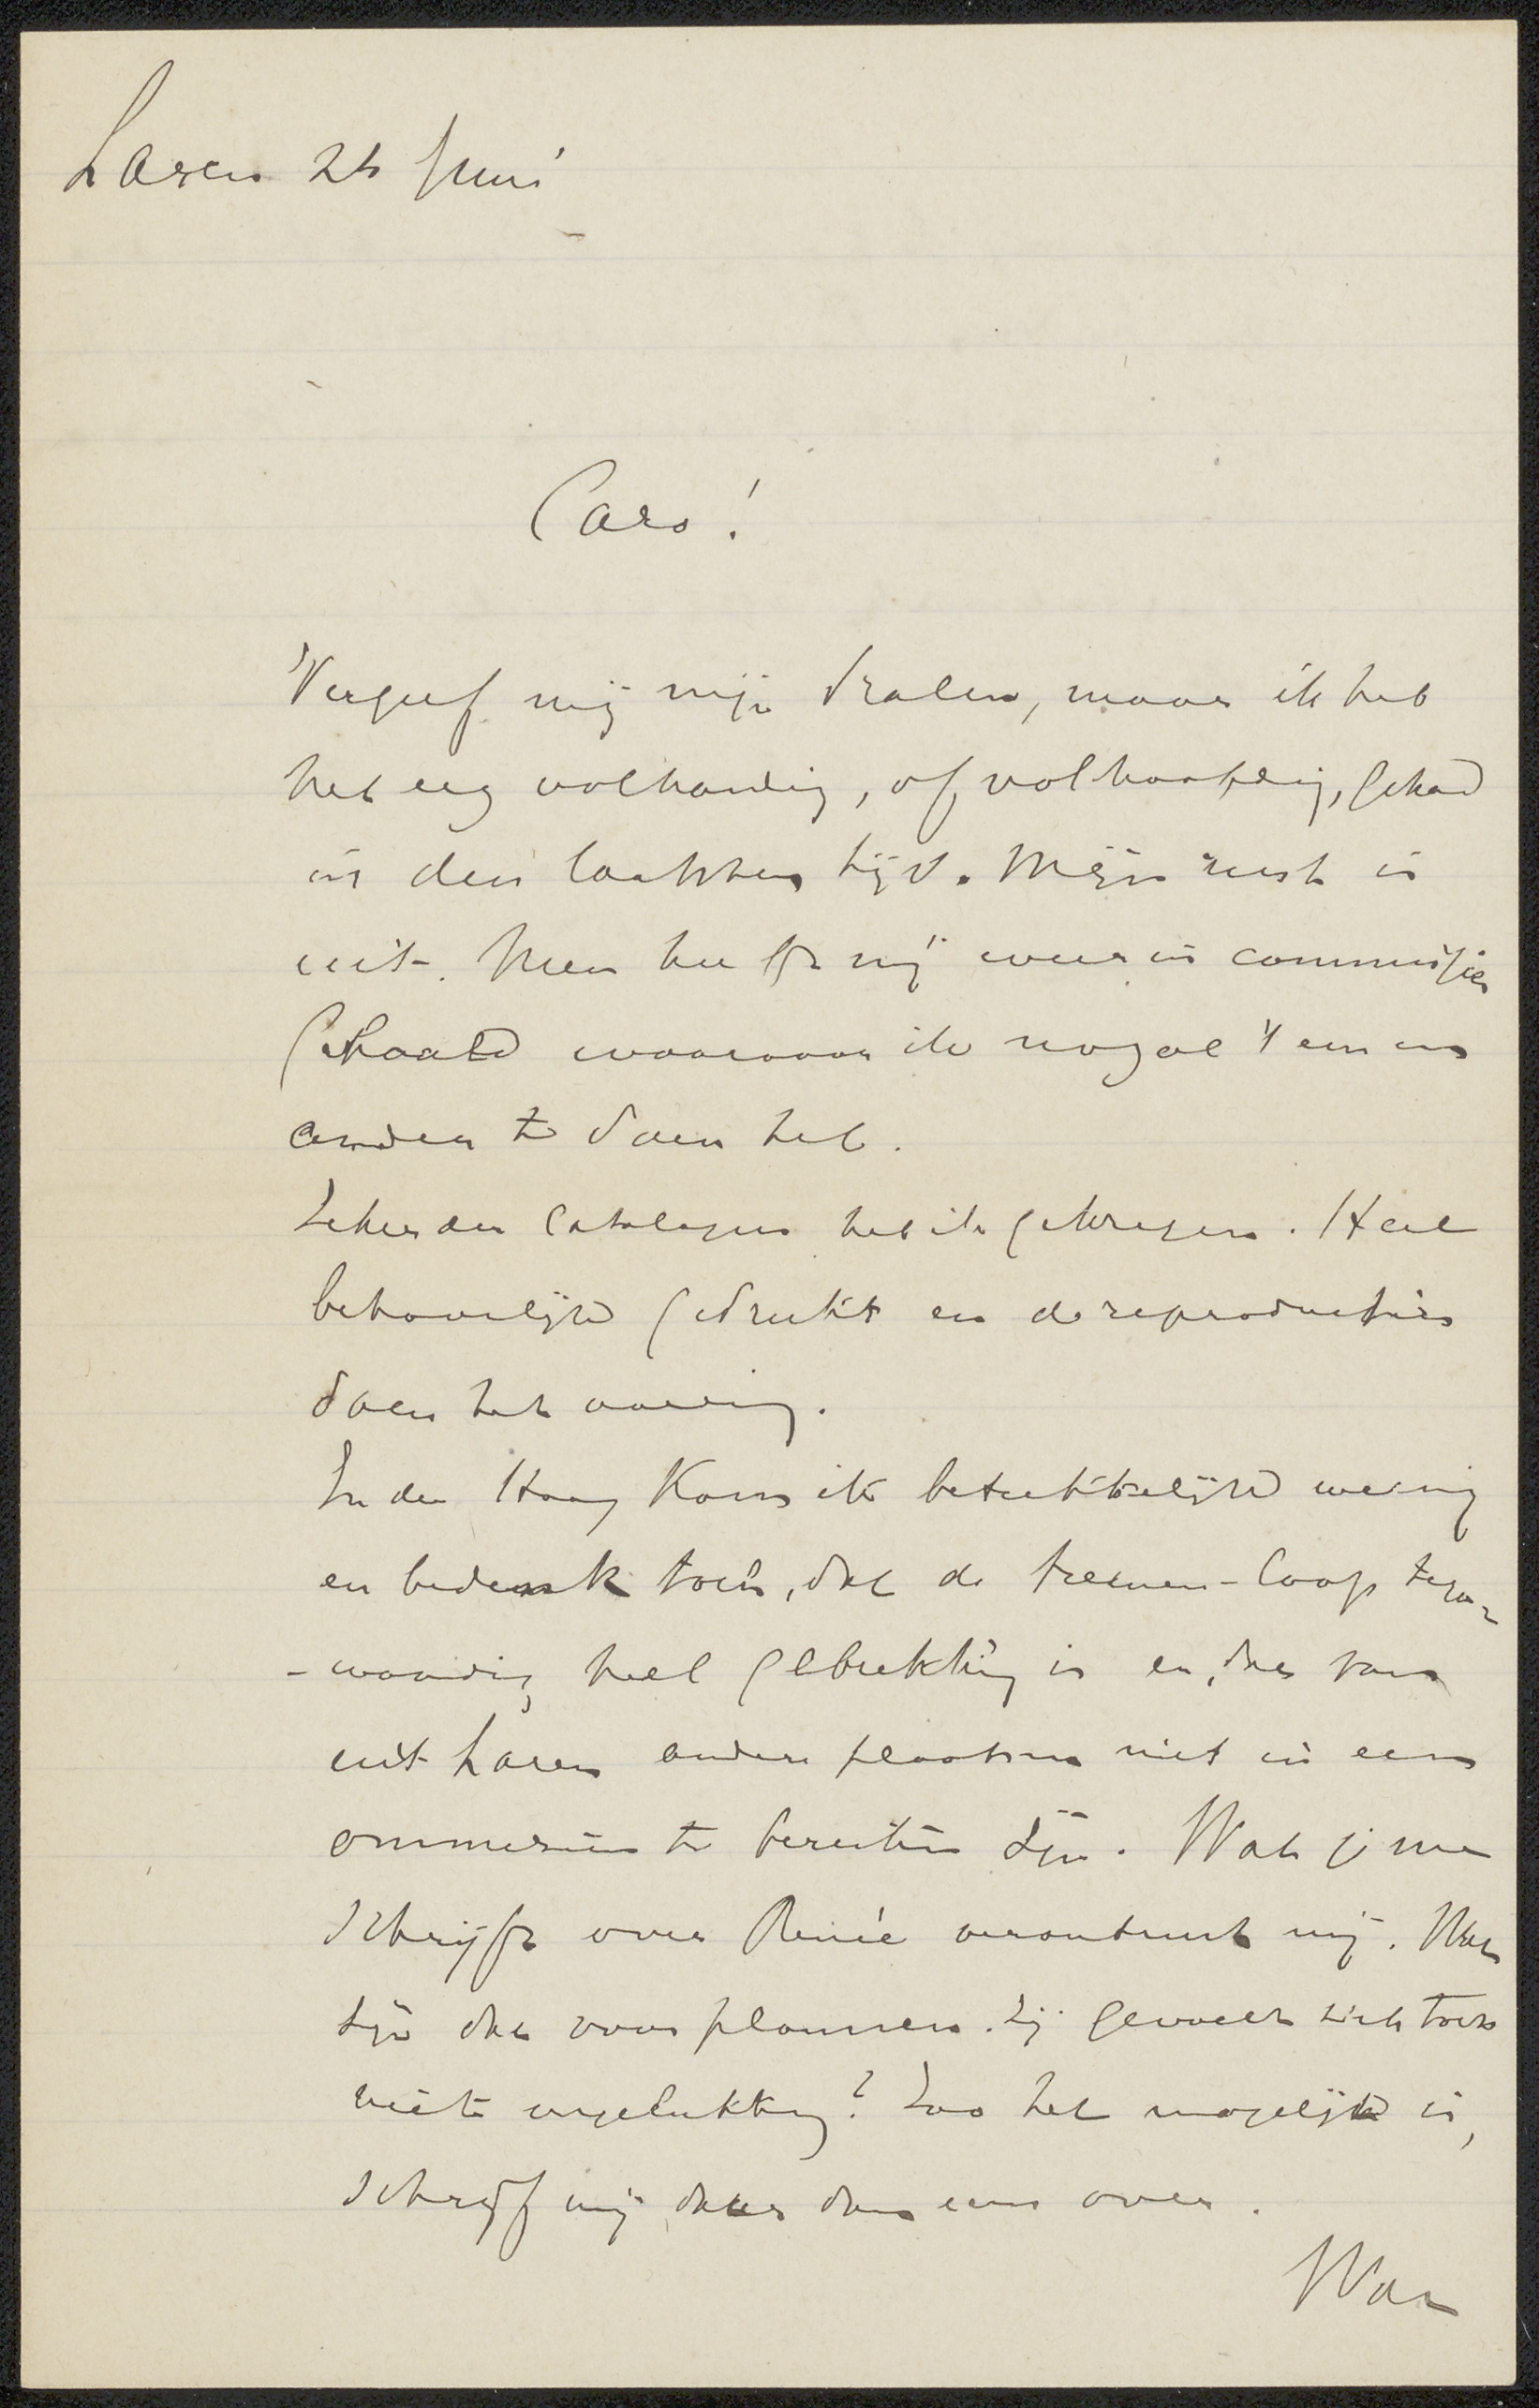 Laren 26 Juni
Caro!
Vergeef mij mijn dralen, maar ik heb
het erg volhandig, of volhoofdig, gehad
in den laatsten tijd. Mijn rust is
uit. Men heeft mij weer in commissies
gehaald waarvoor ik nogal 't een en
ander te doen heb.
Zeker den Catalogus heb ik gekregen. Heel
behoorlijk gedrukt en de reproducties
doen het aardig.
In den Haag kom ik betrekkelijk weinig
en bedenk toch, dat de treinen-loop tegen-
-woordig heel gebrekkig is en, dat van
uit Laren andere plaatsen niet in een
ommezien te bereiken zijn. Wat je me
schrijft over Renée verontrust mij. Wat
zijn dat voor plannen. Zij gevoelt zich toch
niet ongelukkig? Zoo het mogelijk is,
schrijf mij daar dan eens over.
Wat